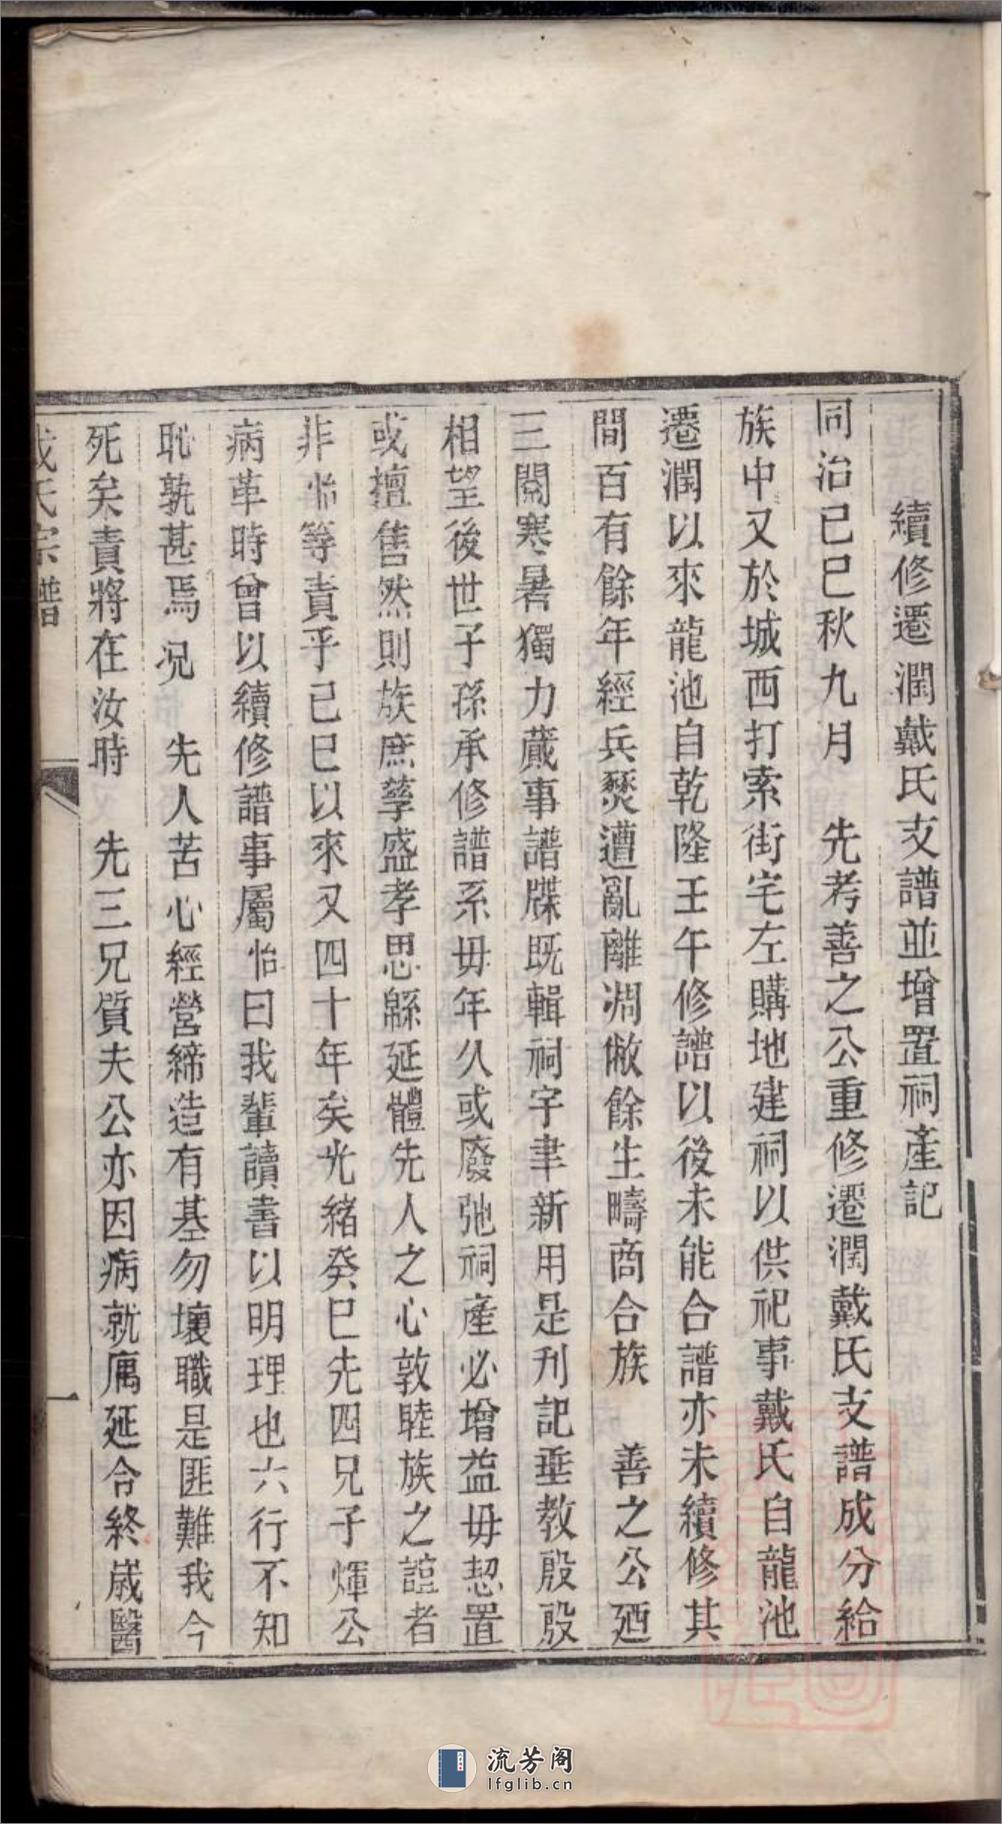 續修遷潤戴氏支譜並增置祠產記
同治己巳秋九月　先考善之公重修遷潤戴氏支譜成分給
族中又於城西打索街宅左購地建祠以供祀事戴氏自龍池
遷潤以來龍池自乾隆壬午修譜以後未能合譜亦未續修其
間百有餘年經兵燹遭亂離凋敝餘生疇商合族　善之公廼
三閱寒暑獨力蕆事譜牒既輯祠宇聿新用是刋記垂教殷殷
相望後世子孫承修譜系毋年久或廢弛祠產必增益毋恝置
或擅售然則族庶孳盛孝思緜延體先人之心敦睦族之誼者
非怡等責乎己巳以來又四十年矣光緒癸巳先四兄子煇公
病革時曾以續修譜事屬怡曰我輩讀書以明理也六行不知
恥孰甚焉況　先人苦心經營締造有基勿壞職是匪難我今
死矣責將在汝時　先三兄質夫公亦因病就厲延合終歲醫
戴氏宗譜
一
流芳阁
lfglib.cn